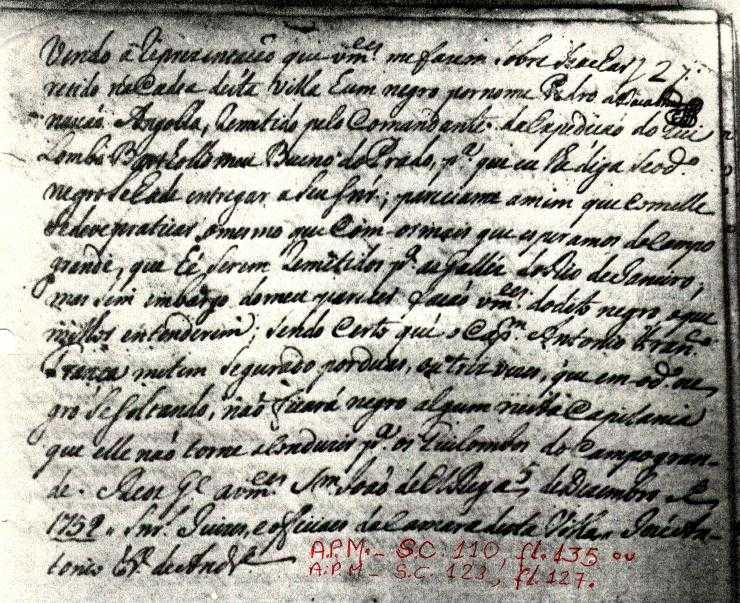 Vendo a Reprezentacaõ que vm.ces me fazem sobre se achar
retido na Cadea desta Villa hum negro por nome Pedro
nacaõ Angolla, Remetido pelo Comandante da Expedicaõ do Qui
Lombo Bartholomeu Bueno do Prado, p.ª que eu lhe diga se o d.º
negro se hade entregar a seu snr.; pareciame a mim que com elle
se deve praticar o mesmo que com os mais que esperamos do Campo
grande, que hé serem Remetidos p.ª as gallés do Rio de Janeiro;
mas sem embargo do meu parecer facaõ vm.ces do dito negro o que
milhor entenderem; sendo certo que o Cap.m Antonio Fran.co
França me tem segurado por duas, ou tres vezes, que em o d.º ne
gro se soltando, naõ ficará negro algum nesta Capitania
que elle naõ torne a conduzir p.ª os Quilombos do Campo gran-
de. Deos G.e a vm.ces S.m Joaõ de El Rey a 5 de Dezembro de
1759. Snr. Juizes, e officiaes da Camara desta Villa. Jozé An-
tonio Fr.e de Andr.ª
A.P.M. - S.C. 110, fl. 135 ou
A.P.M - S.C. 123, fl 127.